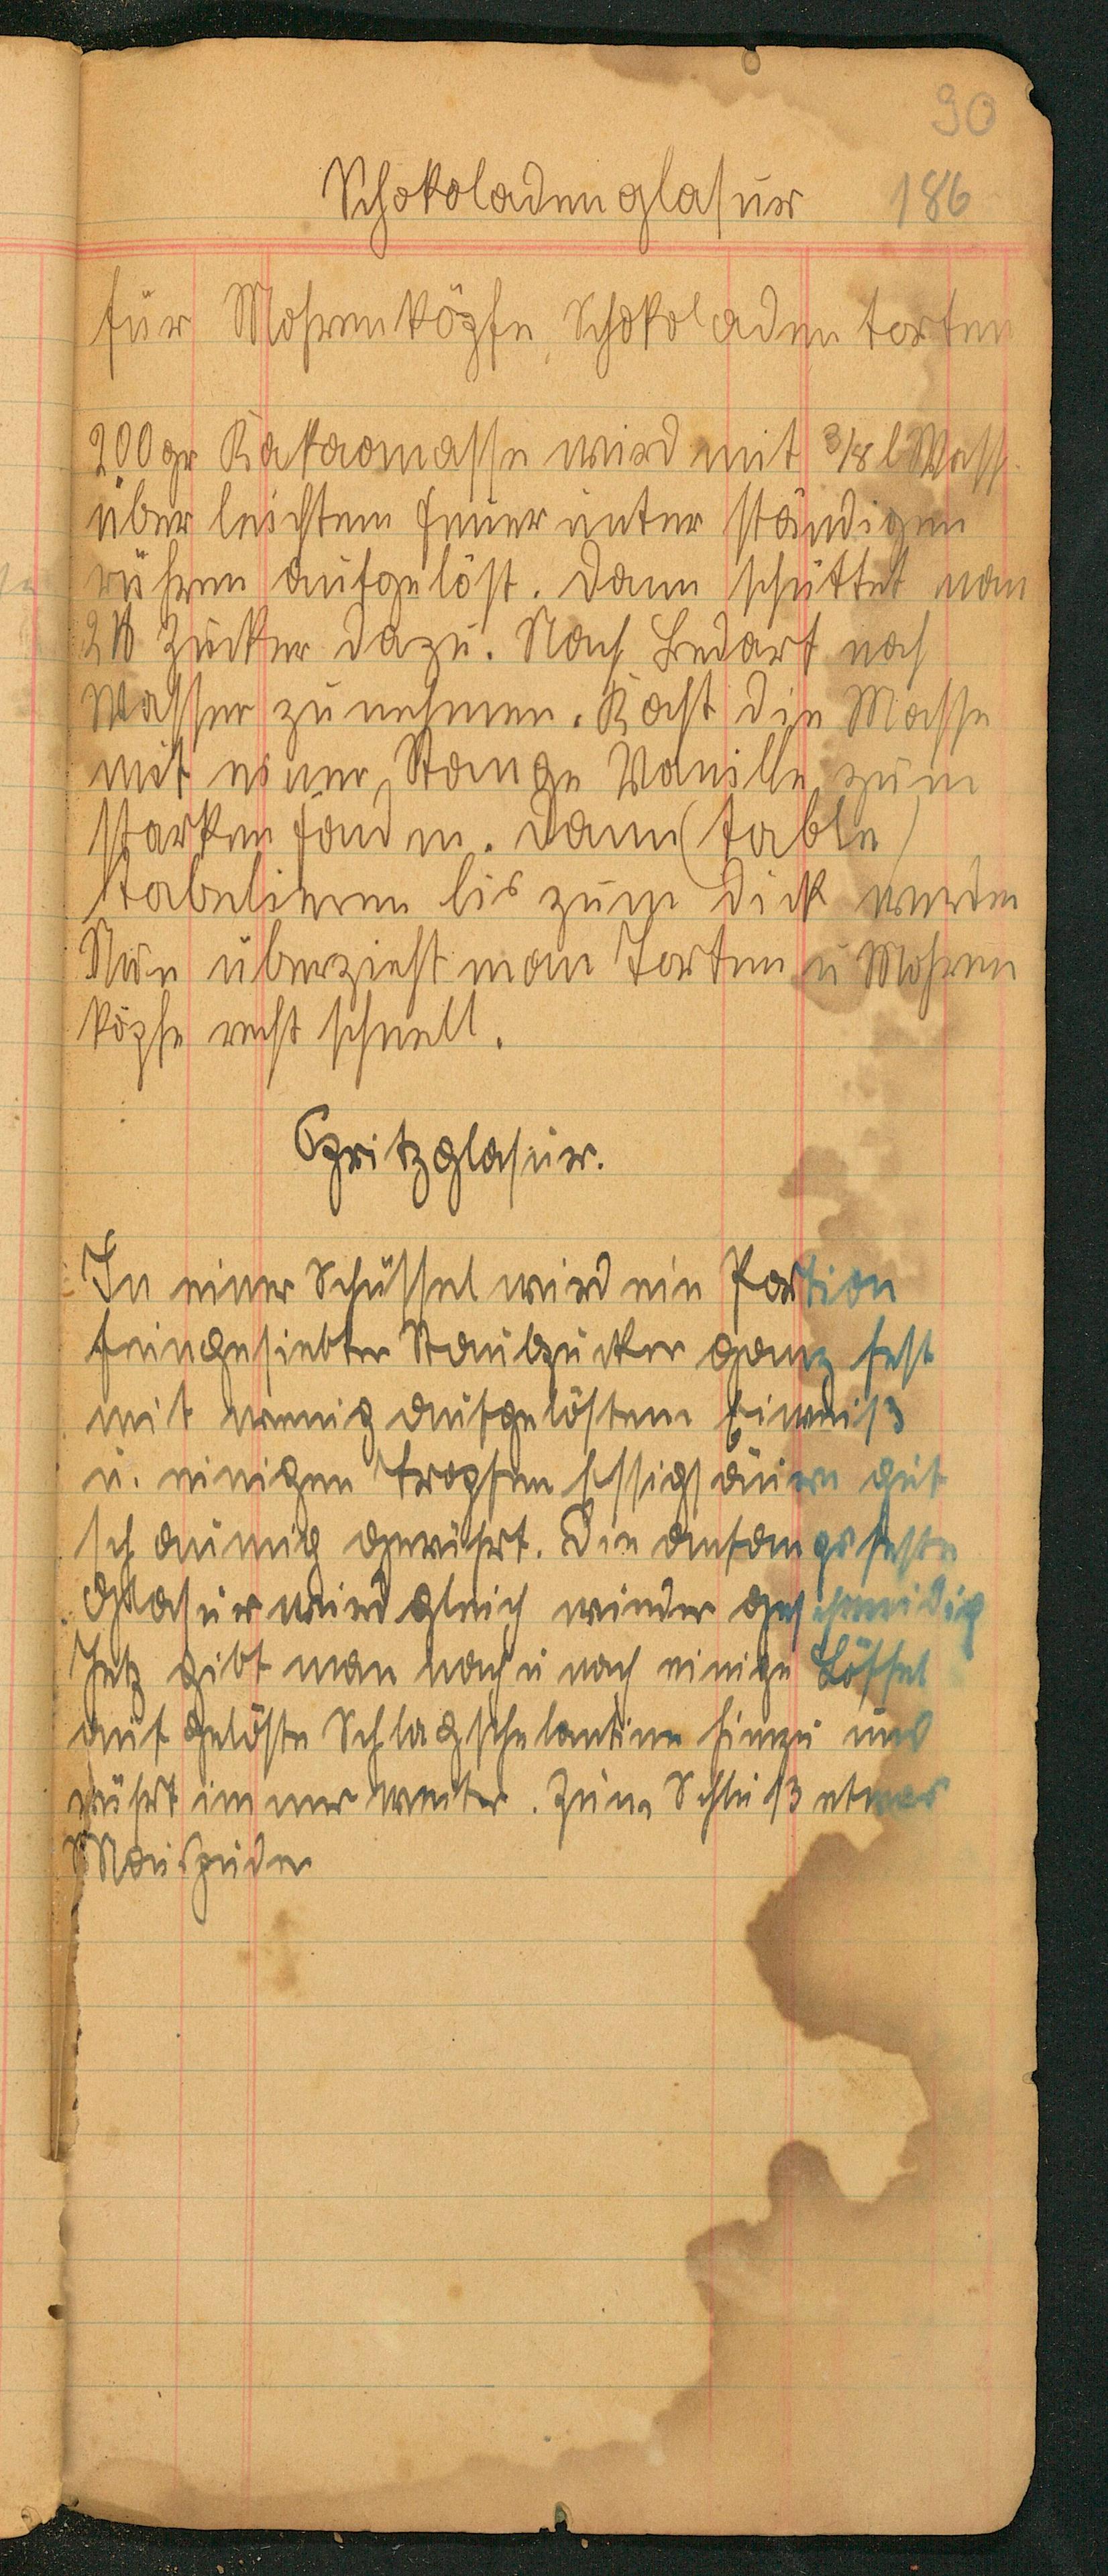 90
Schokoladenglasur 186
für Mohrenköpfe, Schokoladentorten
200 gr Kakaomasse wird mit 3/8 l Wass.
über leichtem Feuer unter ständigen
rühren aufgelöst. Dann schüttet man
2 ℔ Zucker dazu. Nach Bedarf noch
Wasser zu nehmen. Kocht die Masse
mit einer Stange Vanille zum
starken Faden. Dann (table)
tabelieren bis zum dick werden
Nun überzieht man Torten u Mohren
köpfe recht schnell.
Spritzglasur.
In einer Schüssel wird ein Portion
feingesiebter Staubzucker ganz fest
mit wenig aufgelöstem Eiweiß
u. einigen Tropfen Essigsäure gut
schaumig gerührt. Die anfangs feste
Glasur wird gleich wieder geschmeidig
Jetz gibt man nach u nach einige Löffel
aufgelöste Schlagschelantine hinzu und
rührt immer weiter. Zum Schluß etwas
Maispuder